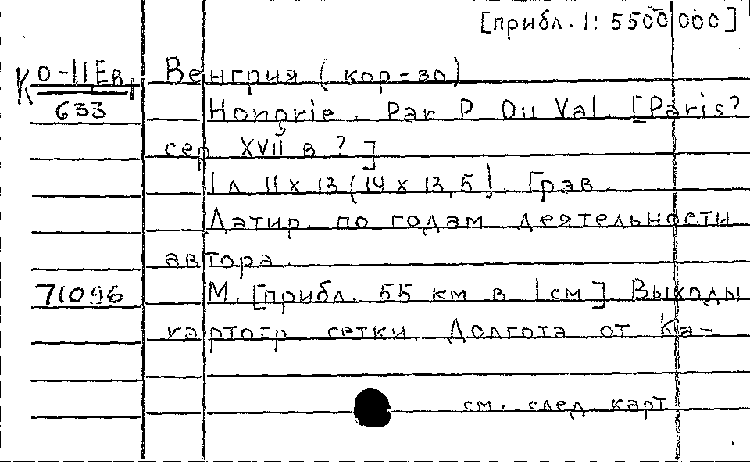 [прибл. 1: 5500 000]
К О-11Ев, Венгрия (кор-во)
633 Hongrie. Par P. Du Val. [Paris?
сер. XVII в.?]
1 л. 11 х 13 (14 х 13,5). Грав.
Датир. по годам деятельности
автора.
71096 М. [прибл. 55 км в 1см]. Выходы
картогр. сетки. Долгота от Ка-
см. след. карт.